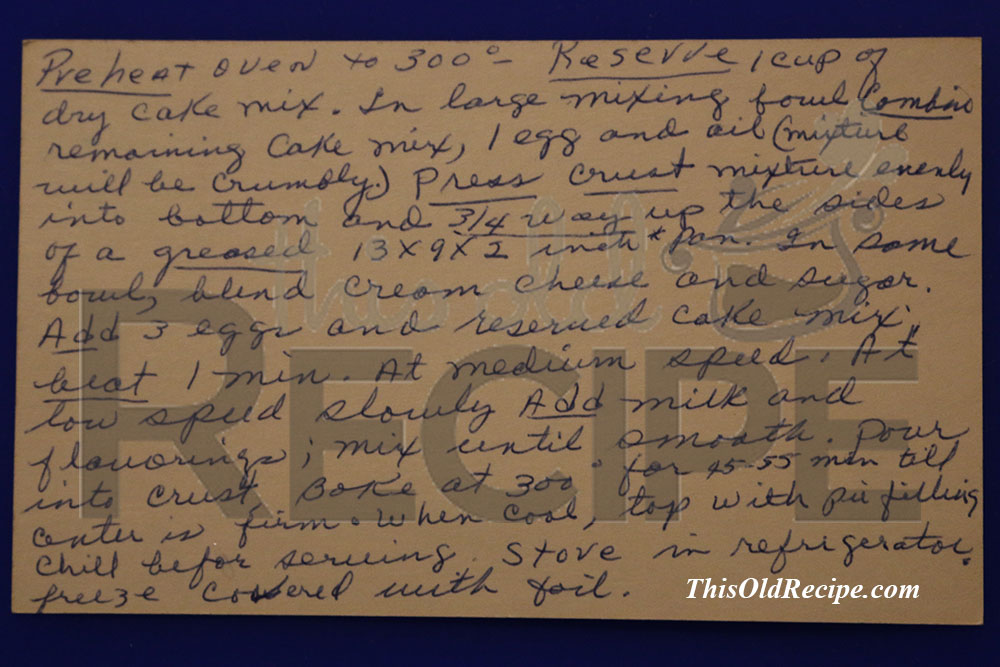 Preheat oven to 300° - Reserve 1 cup of
dry cake mix. In large mixing bowl Combine
remaining Cake mix, 1 egg and oil (mixture
will be Crumbly.) Press Crust mixture evenly
into bottom and 3/4 way up the sides
of a greased 13X9X2 inch * Pan. In same
bowl, blend Cream Cheese and sugar.
Add 3 eggs and reserved Cake mix;
beat 1 min. At medium speed. At
low speed slowly Add milk and
flavorings; mix until smooth. Pour
into Crust. Bake at 300° for 45-55 min till
center is firm. When Cool, top with pie filling
Chill befor serving. Store in refrigerator.
freeze Covered with foil.
this old
RECIPE
ThisOldRecipe.com